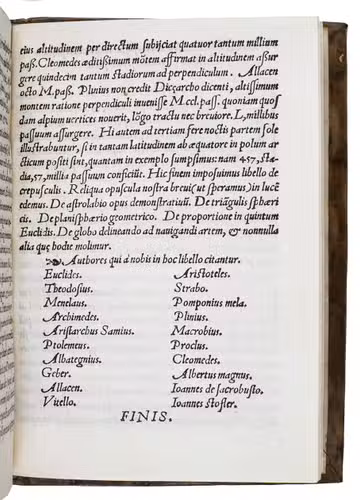 eius altitudinem per directum subijciat quatuor tantum millium
paß. Cleomedes æditißimum mõtem affirmat in altitudinem aßur
gere quindecim tantum stadiorum ad perpendiculum. Allacen
octo M.paß. Plinius non credit Dicęarcho dicenti, altißimum
montem ratione perpendiculi inuenisse M.ccl.pass. quoniam quos
dam alpium vertices nouerit, lõgo tractu nec breuiore. L, millibus
passuum assurgere. Hi autem ad tertiam fere noctis partem sole
illustrabuntur, si in tantam latitudinem ab æquatore in polum ar
cticum positi sint, quantam in exemplo sumpsimus: nam 457, sta
dia, 57, millia passuum conficiũt. Hic finem imposuimus libello de
crepusculis. Reliqua opuscula nostra breui (ut speramus) in lucẽ
edemus. De astrolabio opus demonstratiuũ. De triãgulis sphæri
cis. De planisphærio geometrico. De proportione in quintum
Euclidis. De globo delineando ad nauigandi artem, & nonnulla
alia quę hodie molimur.
Authores qui a nobis in hoc libello citantur.
Euclides. Aristoteles.
Theodosius. Strabo.
Menelaus. Pomponius mela.
Archimedes. Plinius.
Aristarchus Samius. Macrobius.
Ptolemeus. Proclus.
Albategnius. Cleomedes.
Geber. Albertus magnus.
Allacen. Ioannes de sacrobusto.
Vitello. Ioannes stofler.
FINIS.